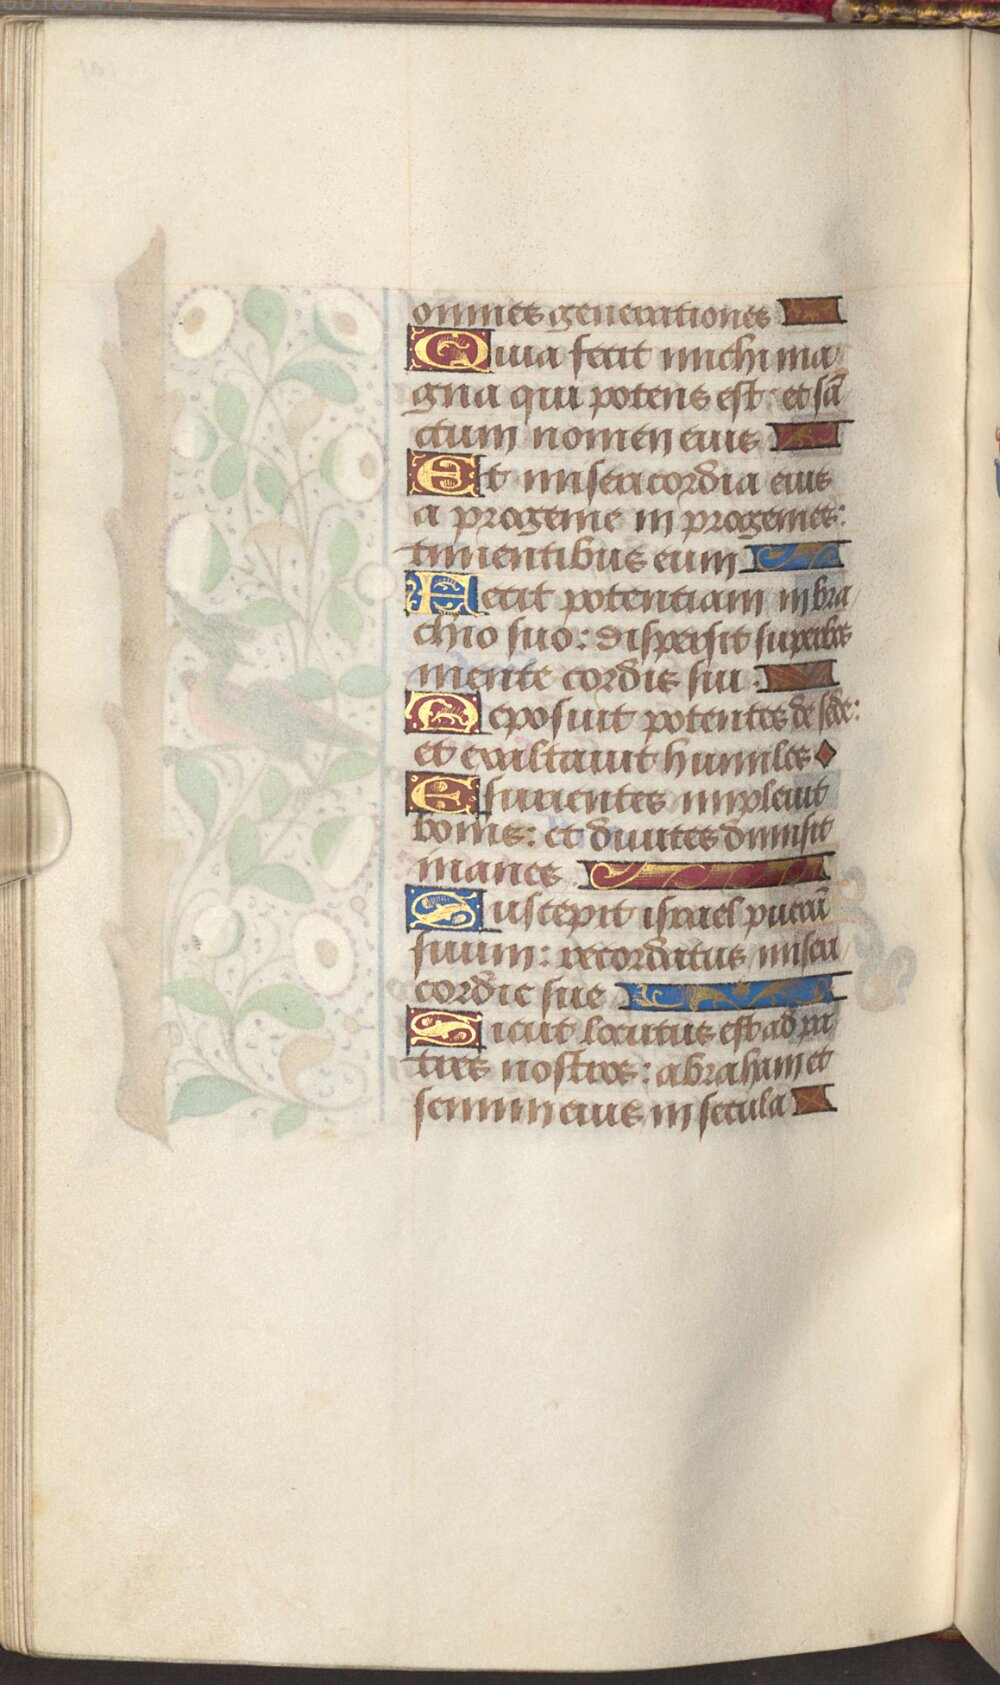 omnes generationes
Quia fecit michi ma
gna qui potens est: et sā
ctum nomen eius
Et misericordia eius
a progenie in progenies:
timentibus eum
Fecit potentiam in bra
chio suo: dispersit superbos
mente cordis sui
Deposuit potentes de sede:
et exaltauit humiles
Esurientes impleuit
bonis: et diuites dimisit
inanes
Suscepit israel pueū
suum: recordatus miseri
cordie sue
Sicut locutus est ad pa
tres nostros: abraham et
semini eius in secula